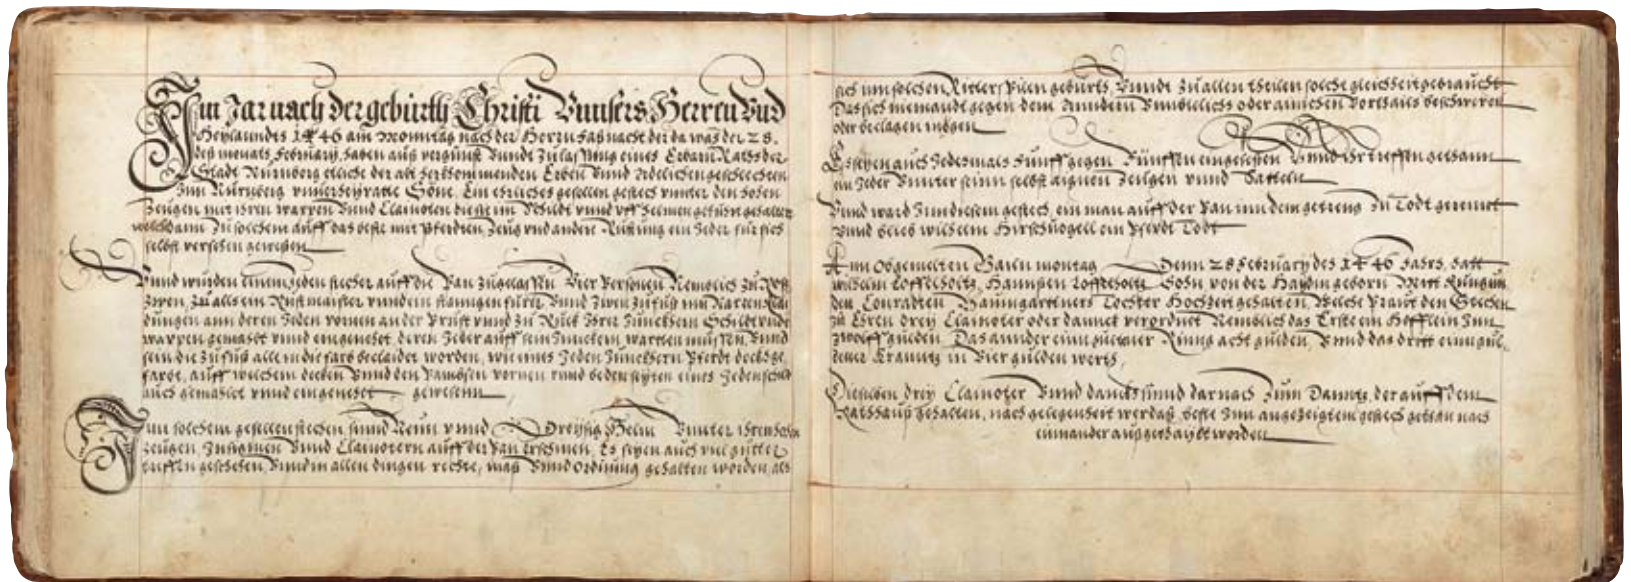 Im Jar nach der geburth Christi Vnnsers Herren Vnd
Heylanndts 1446 am Monntag nach der Herrn faßnacht der da was der 28.
deß monats February, haben auß vergunst Vnnde Zulassung eines Erbarn Raths der
Stadt Nürnberg etliche der alt herkommenden Erben Vnnd Adelichen geschlechten
Zun Nürnberg vnuerheyratte Söne, Ein ehrliches gesellen gestech vnnter den hohen
Zeugen mit ihren wappen Vnnd Clainoten die sie im Schildt vnnd vff helmen gefuhrt gehalten
welch dann Zu solchem auff das beste mit Pferdten, Zeug vnd andere Rüstung ein Jeder für sich
selbst versehen gewesen
Vnnd wurden einem Jeden stecher auff die Pan Zugelassen Vier Personen Nemblich Zu Roß
Zwen, Zu
dungen ann deren Jeden vornen an der Prust vnnd Zu Ruck Ihrer Junckhern Schildt vnnd
wappen gemahlt vnnd eingenehet, deren Jeder auff sein Junckern warten müssen, Vnnd
sein die Zu fuß alle in die farb beclaidet worden, wie eines Jeden Junckhern Pferdt deckh ge-
farbt, auff welchem decken Vnnd den vornen vnnd beden seyten eines Jeden schildt
auch gemahlet vnnd eingenehet gewesenn
Inn solchem gesellen stechen, sinnd Neun vnnd Dreyssig Helm Vnnter ihren hohen
Zeugen, Vnnd Clainotern auff der Pan erschinen, Es seyen auch viel gutter
treffen geschehen, Vnnd in allen dingen rechte, maß Vnnd Ordnung gehalten worden, als
sich inn solchen Ritterspilen geburth, Vnnde Zu allen theilen solche gleichheit gebraucht
Das sich niemandt gegen dem Anndern Vnnbillichs oder ainichen Vorthails beschweren
oder beclagen mögen
Es seyen auch Jedesmals Funff gegen Fünffen eingelassen Vnnd ihr treffen gethann
ein Jeder Vnnter seinn selbst aignen Zeugen vnnd Satteln
Vnnd ward Inn diesem gestech, ein man auff der Pan inn dem getreng Zu Todt gerennet
Vnnd blieb Wilhelm Hirschuogell ein Pferdt Todt
Ann Obgemelten Montag Denn 28 February des 1446 Jahrs, hatt
Wilhelm Loffelholtz, Hannßen Loffelholtz Sohn von der Haydin geborn Mitt Kunigun-
den Conradten Baumgartners Tochter Hochzeit gehalten Welche Praut den Stechern
Zu Ehren drey Clainoter oder dannck verordnet Nemblich das Erste ein Hefftlein Inn
Zwölff gulden Das annder einn guldener Ring acht gulden, Vnnd das dritt einn gul-
dener Krannz in Vier gulden werth,
Dieselben drey Clainoter Vnnd danckh sinnd darnach Zum Danntz, der auff dem
Rathhauß gehalten, nach gelegenheit wer das beste Inn angezeigtem gestech gethan nach
einnander außgethaylt worden